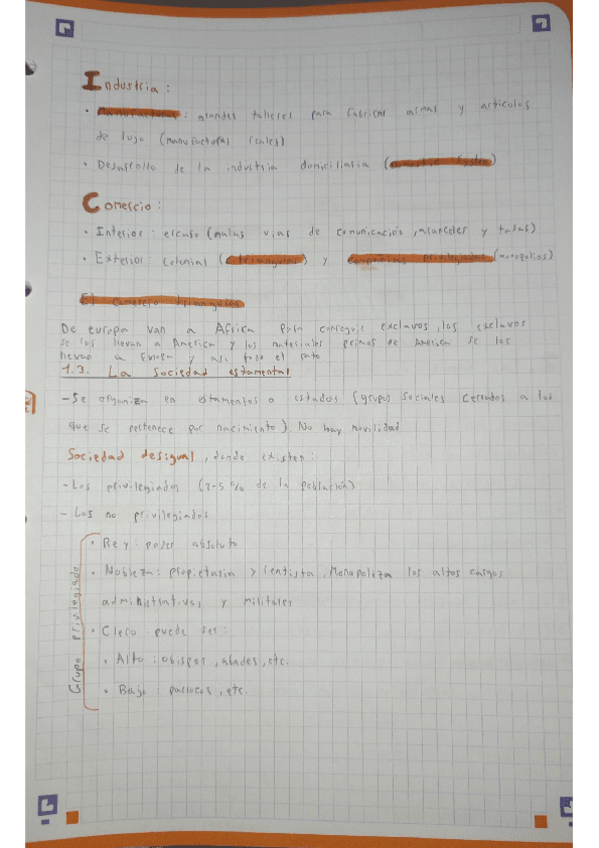 Industria:
• Manufacturas: grandes talleres para fabricar armas y artículos
de lujo (manufacturas reales)
• Desarrollo de la industria domiciliaria (domestic system)
Comercio:
• Interior: escaso (malas vías de comunicación, aranceles y tasas)
• Exterior: colonial (c. triangular) y compañías privilegiadas (monopolios)
El comercio triangular
De europa van a Africa para conseguir exclavos, los esclavos
se los llevan a America y las materiales primas de America se los
llevan a Europa y asi todo el rato
1.3. La Sociedad estamental
- Se organiza en estamentos o estados (grupos sociales cerrados a los
que se pertenece por nacimiento) No hay movilidad
Sociedad desigual, donde existen:
- Los privilegiados (2-5% de la población)
- Los no privilegiados
Grupo privilegiado
• Rey: poder absoluto
• Nobleza: propietaria y rentista. Monopoliza los altos cargos
administrativos y militares
• Clero puede ser:
• Alto: obispos, abades, etc.
• Bajo: parrocos, etc.